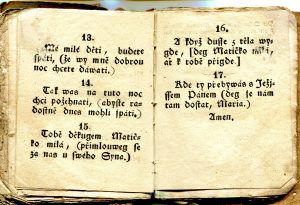 13.
Mé milé děti, budete
spáti, (že wy mně dobrou
noc chcete dáwati.)
14.
Tak was na tuto noc
chci požehnati, (abyste ra-
dostně dnes mohli spáti.)
15.
Tobě děkugem Matič-
ko milá, (přimlouweg se
za nas u sweho Syna.)
16.
A když duše z těla wy-
gde, [deg Matičko
ať k tobě přigde.]
17.
Kde ty přebýwáš s Ježi-
ssem Pánem (deg je nám
tam dostat, Maria.)
Amen.